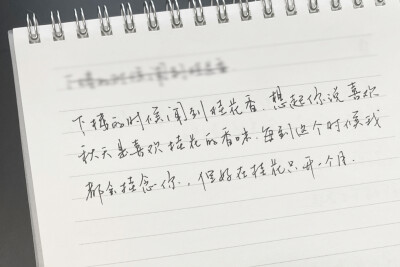 下楼的时候闻到桂花香.想起你说喜欢
秋天是喜欢桂花的香味.每到这个时候我
都会挂念你.,但好在桂花只开一个月.